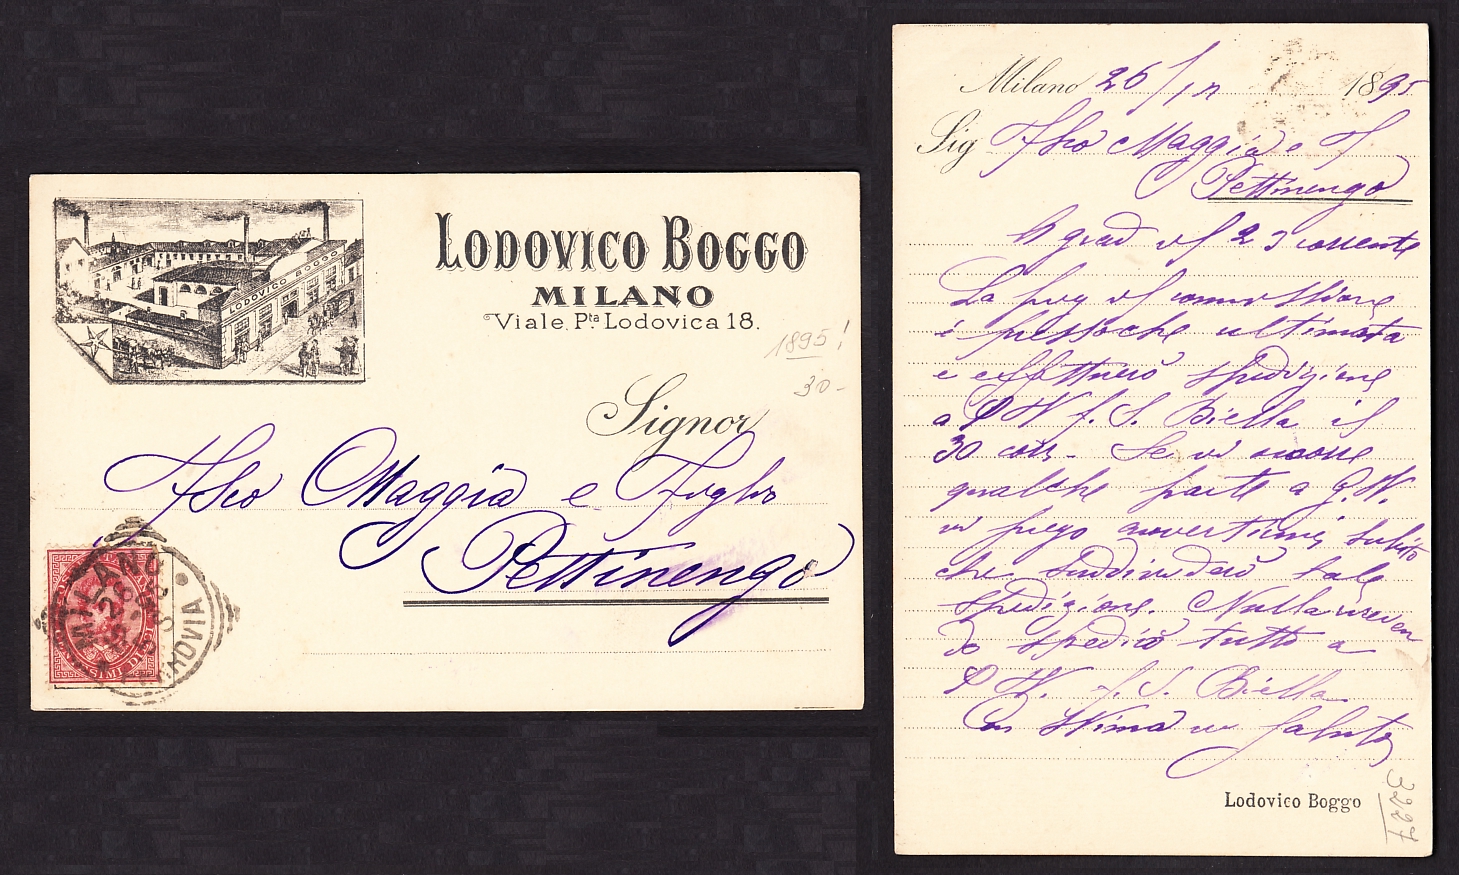 LODOVICO BOGGO
LODOVICO BOGGO
MILANO
Viale P.ta Lodovica 18.
1895!
30-
Signor
Maggia e Figlio
Pettinengo
MILANO
FERROVIA
Milano 26/ 1895
Sig Maggia e F
Pettinengo
grad 23 corrente
La commissione
è pressoché ultimata
e effettuerò spedizione
a P. V. f. S. Biella il
30 corr. Se vi occorre
qualche parte a G. V.
vi prego avvertirmi subito
che suddividerò tale
spedizione. Nulla riceven
do spedirò tutto a
P. V. f. S. Biella
Con stima vi saluto
Lodovico Boggo
3227